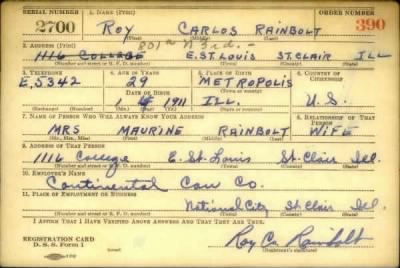 SERIAL NUMBER 1. NAME (Print) ORDER NUMBER
2700 ROY CARLOS RAINBOLT 390
(First) (Middle) (Last)
2. ADDRESS (Print) 801a N 3rd.-
1116 COLLEGE E. ST. LOUIS ST. CLAIR ILL
(Number and street or R. F. D. number) (Town) (County) (State)
3. TELEPHONE 4. AGE IN YEARS 5. PLACE OF BIRTH 6. COUNTRY OF CITIZENSHIP
E, 5342 29 METROPOLIS
DATE OF BIRTH (Town or county)
1 1911 ILL. U.S.
(Exchange) (Number) (Mo.) (Day) (Yr.) (State or country)
7. NAME OF PERSON WHO WILL ALWAYS KNOW YOUR ADDRESS 8. RELATIONSHIP OF THAT PERSON
MRS MAURINE RAINBOLT WIFE
(Mr., Mrs., Miss) (First) (Middle) (Last)
9. ADDRESS OF THAT PERSON
1116 College E. St. Louis St. Clair Ill.
(Number and street or R. F. D. number) (Town) (County) (State)
10. EMPLOYER'S NAME
Continental Can Co.
11. PLACE OF EMPLOYMENT OR BUSINESS
National City St. Clair Ill.
(Number and street or R. F. D. number) (Town) (County) (State)
I AFFIRM THAT I HAVE VERIFIED ABOVE ANSWERS AND THAT THEY ARE TRUE.
REGISTRATION CARD
D. S. S. Form 1 Roy C. Rainbolt
(Registrant's signature)